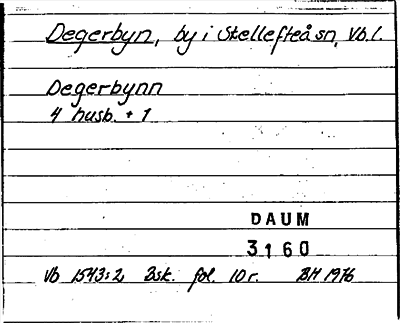 Degerbyn, by i Skellefteå sn, Vb.l.
Degerbynn
4 husb. + 1
DAUM
3160
Vb 1543:2 Bsk. fol. 10 r. BH 1976